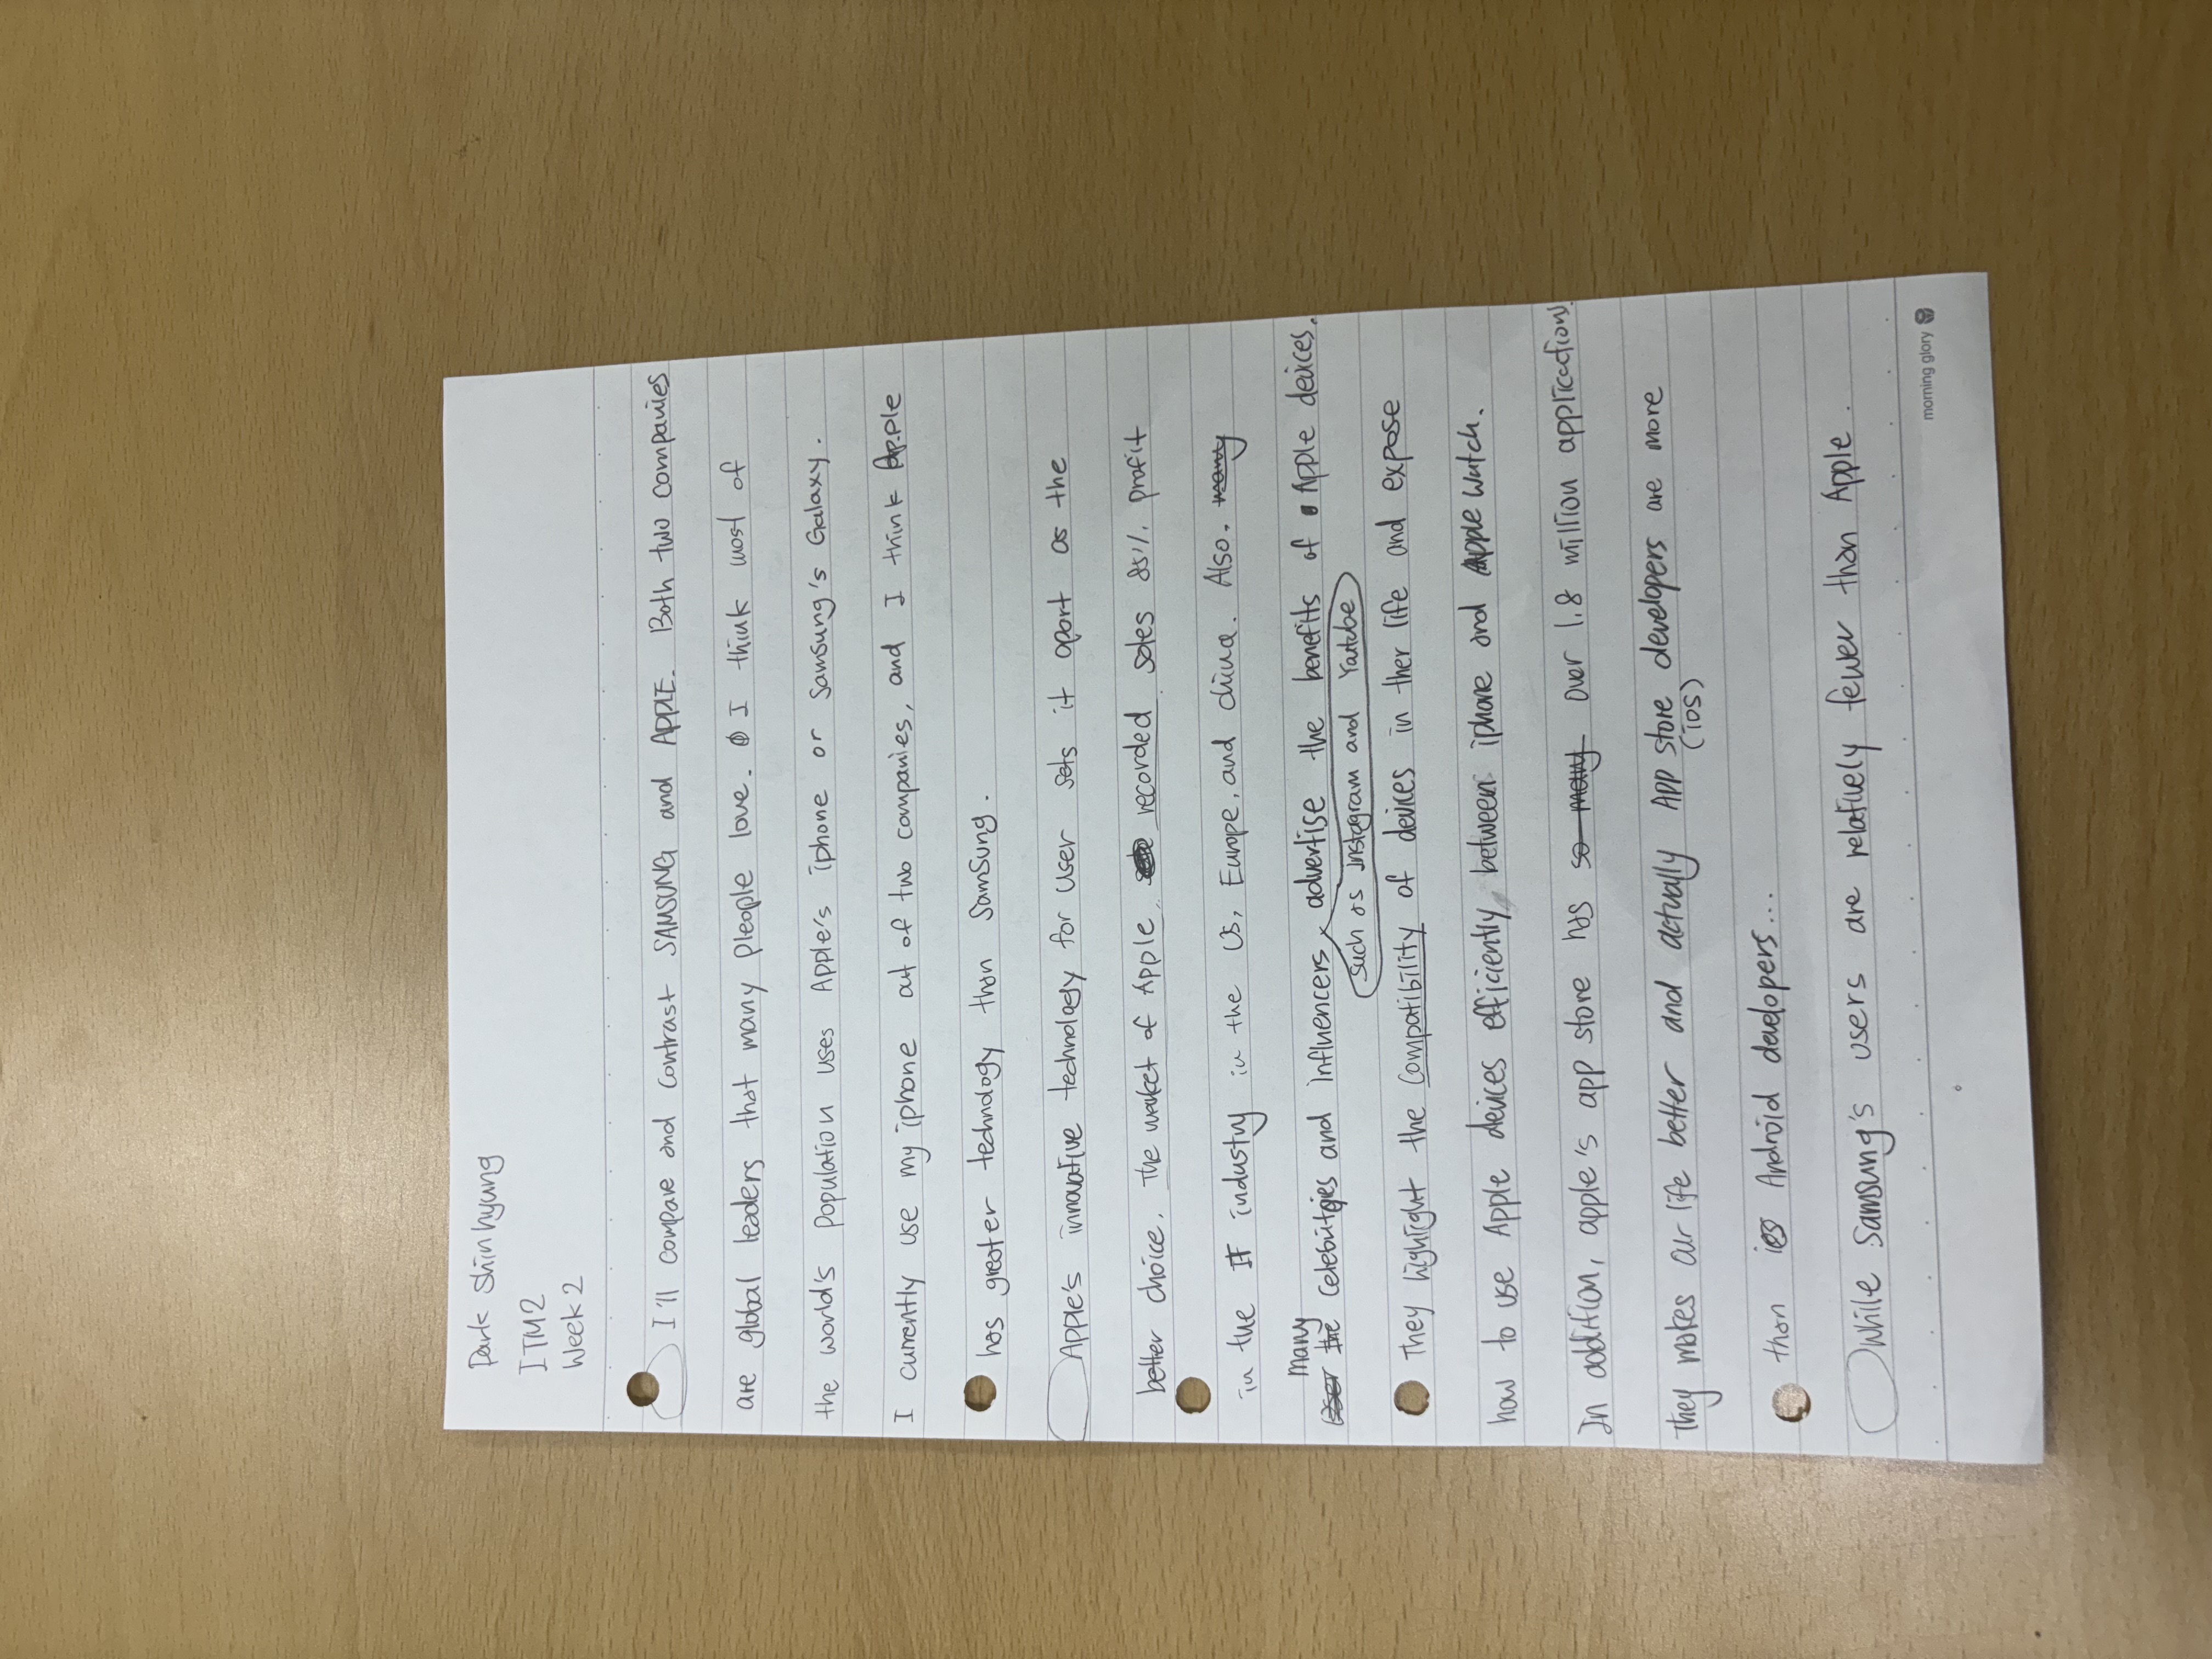 Park Shinhyung
ITM2
Week 2
I'll compare and contrast SAMSUNG and APPLE. Both two companies
are global leaders that many pleople love. I think most of
the world's population uses Apple's iphone or Samsung's Galaxy.
I currently use my iphone out of two companies, and I think Apple
has greater technology than Samsung.
Apple's innovative technology for user sets it apart as the
better choice. The market of Apple recorded sales 85% profit
in the IT industry in the US, Europe, and china. Also. many
many
the celebrities and influencers advertise the benefits of Apple devices.
such as Instagram and Youtube
They highlight the compatibility of devices in ther life and expose
how to use Apple devices efficiently between iphone and Apple Watch.
In addition, apple's app store has so many over 1.8 million applications.
They makes our life better and actually App store developers are more
(ios)
than Android developers...
While Samsung's users are relatively fewer than Apple.
morning glory